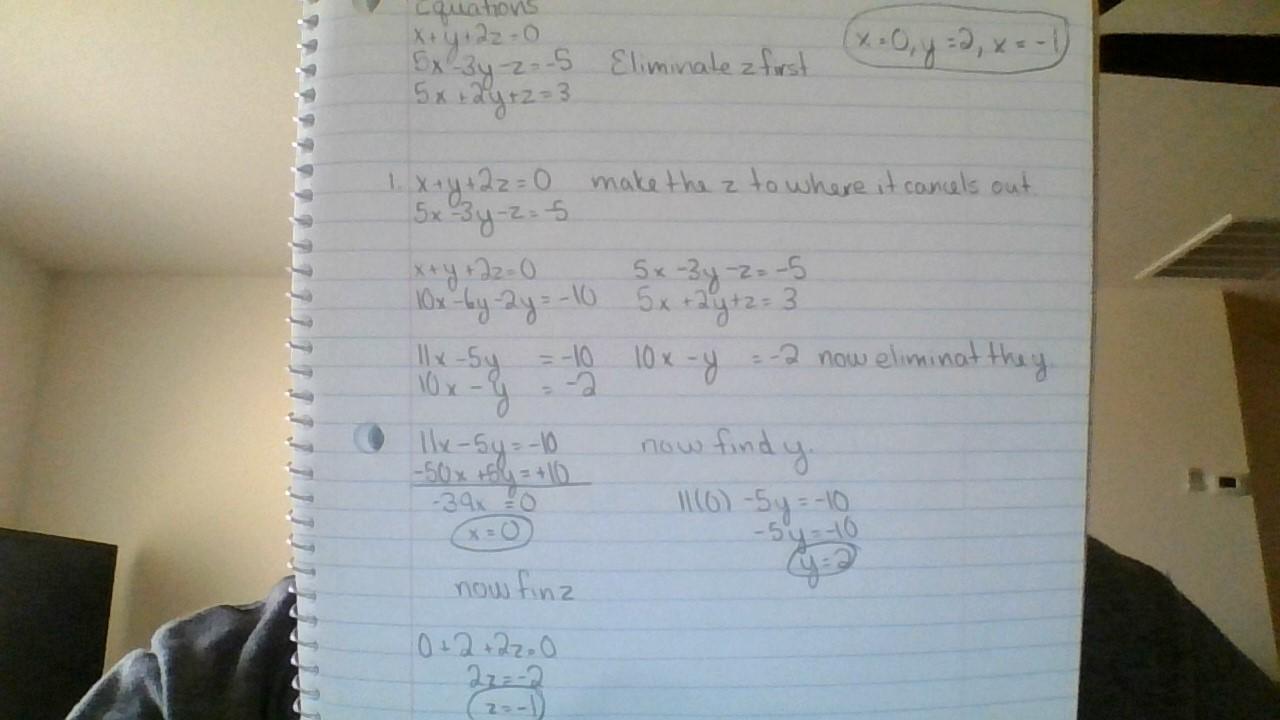 Equations
x+y+2z=0
x=0, y=2, x=-1
5x-3y-z=-5 Eliminate z first
5x+2y+z=3
1. x+y+2z=0 make the z to where it cancels out
5x-3y-z=-5
x+y+2z=0 5x-3y-z=-5
10x-6y-2y=-10 5x+2y+z=3
11x-5y =-10 10x-y =-2 now eliminat they
10x-y =-2
11x-5y=-10 now find y.
-50x+5y=+10
-39x =0 11(0)-5y=-10
x=0 -5y=-10
y=2
now fin z
0+2+2z=0
2z=-2
z=-1